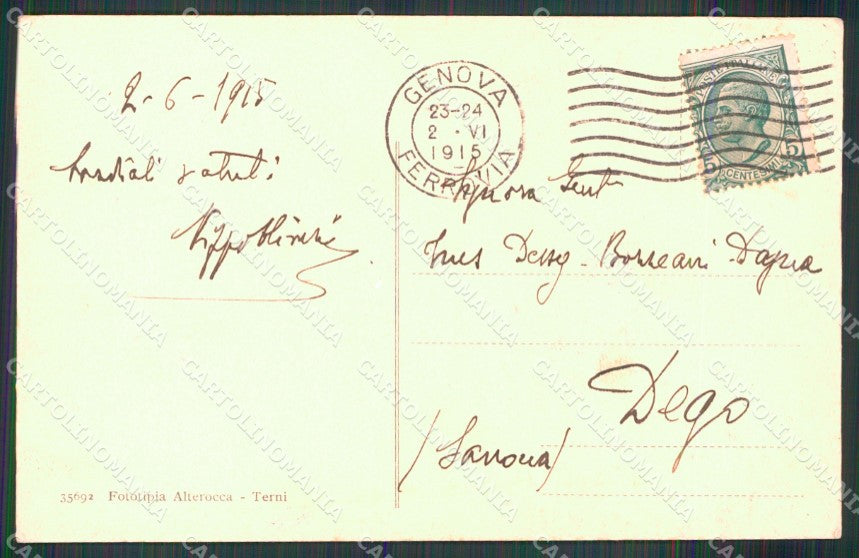 2-6-1915
Cordiali saluti
GENOVA
23-24
2 · VI
1915
FERROVIA
POSTE ITALIANE
5 5
CENTESIMI
Signora Gent
Ines
Dego
(Savona)
35692 Fototipia Alterocca - Terni
CARTOLINOMANIA